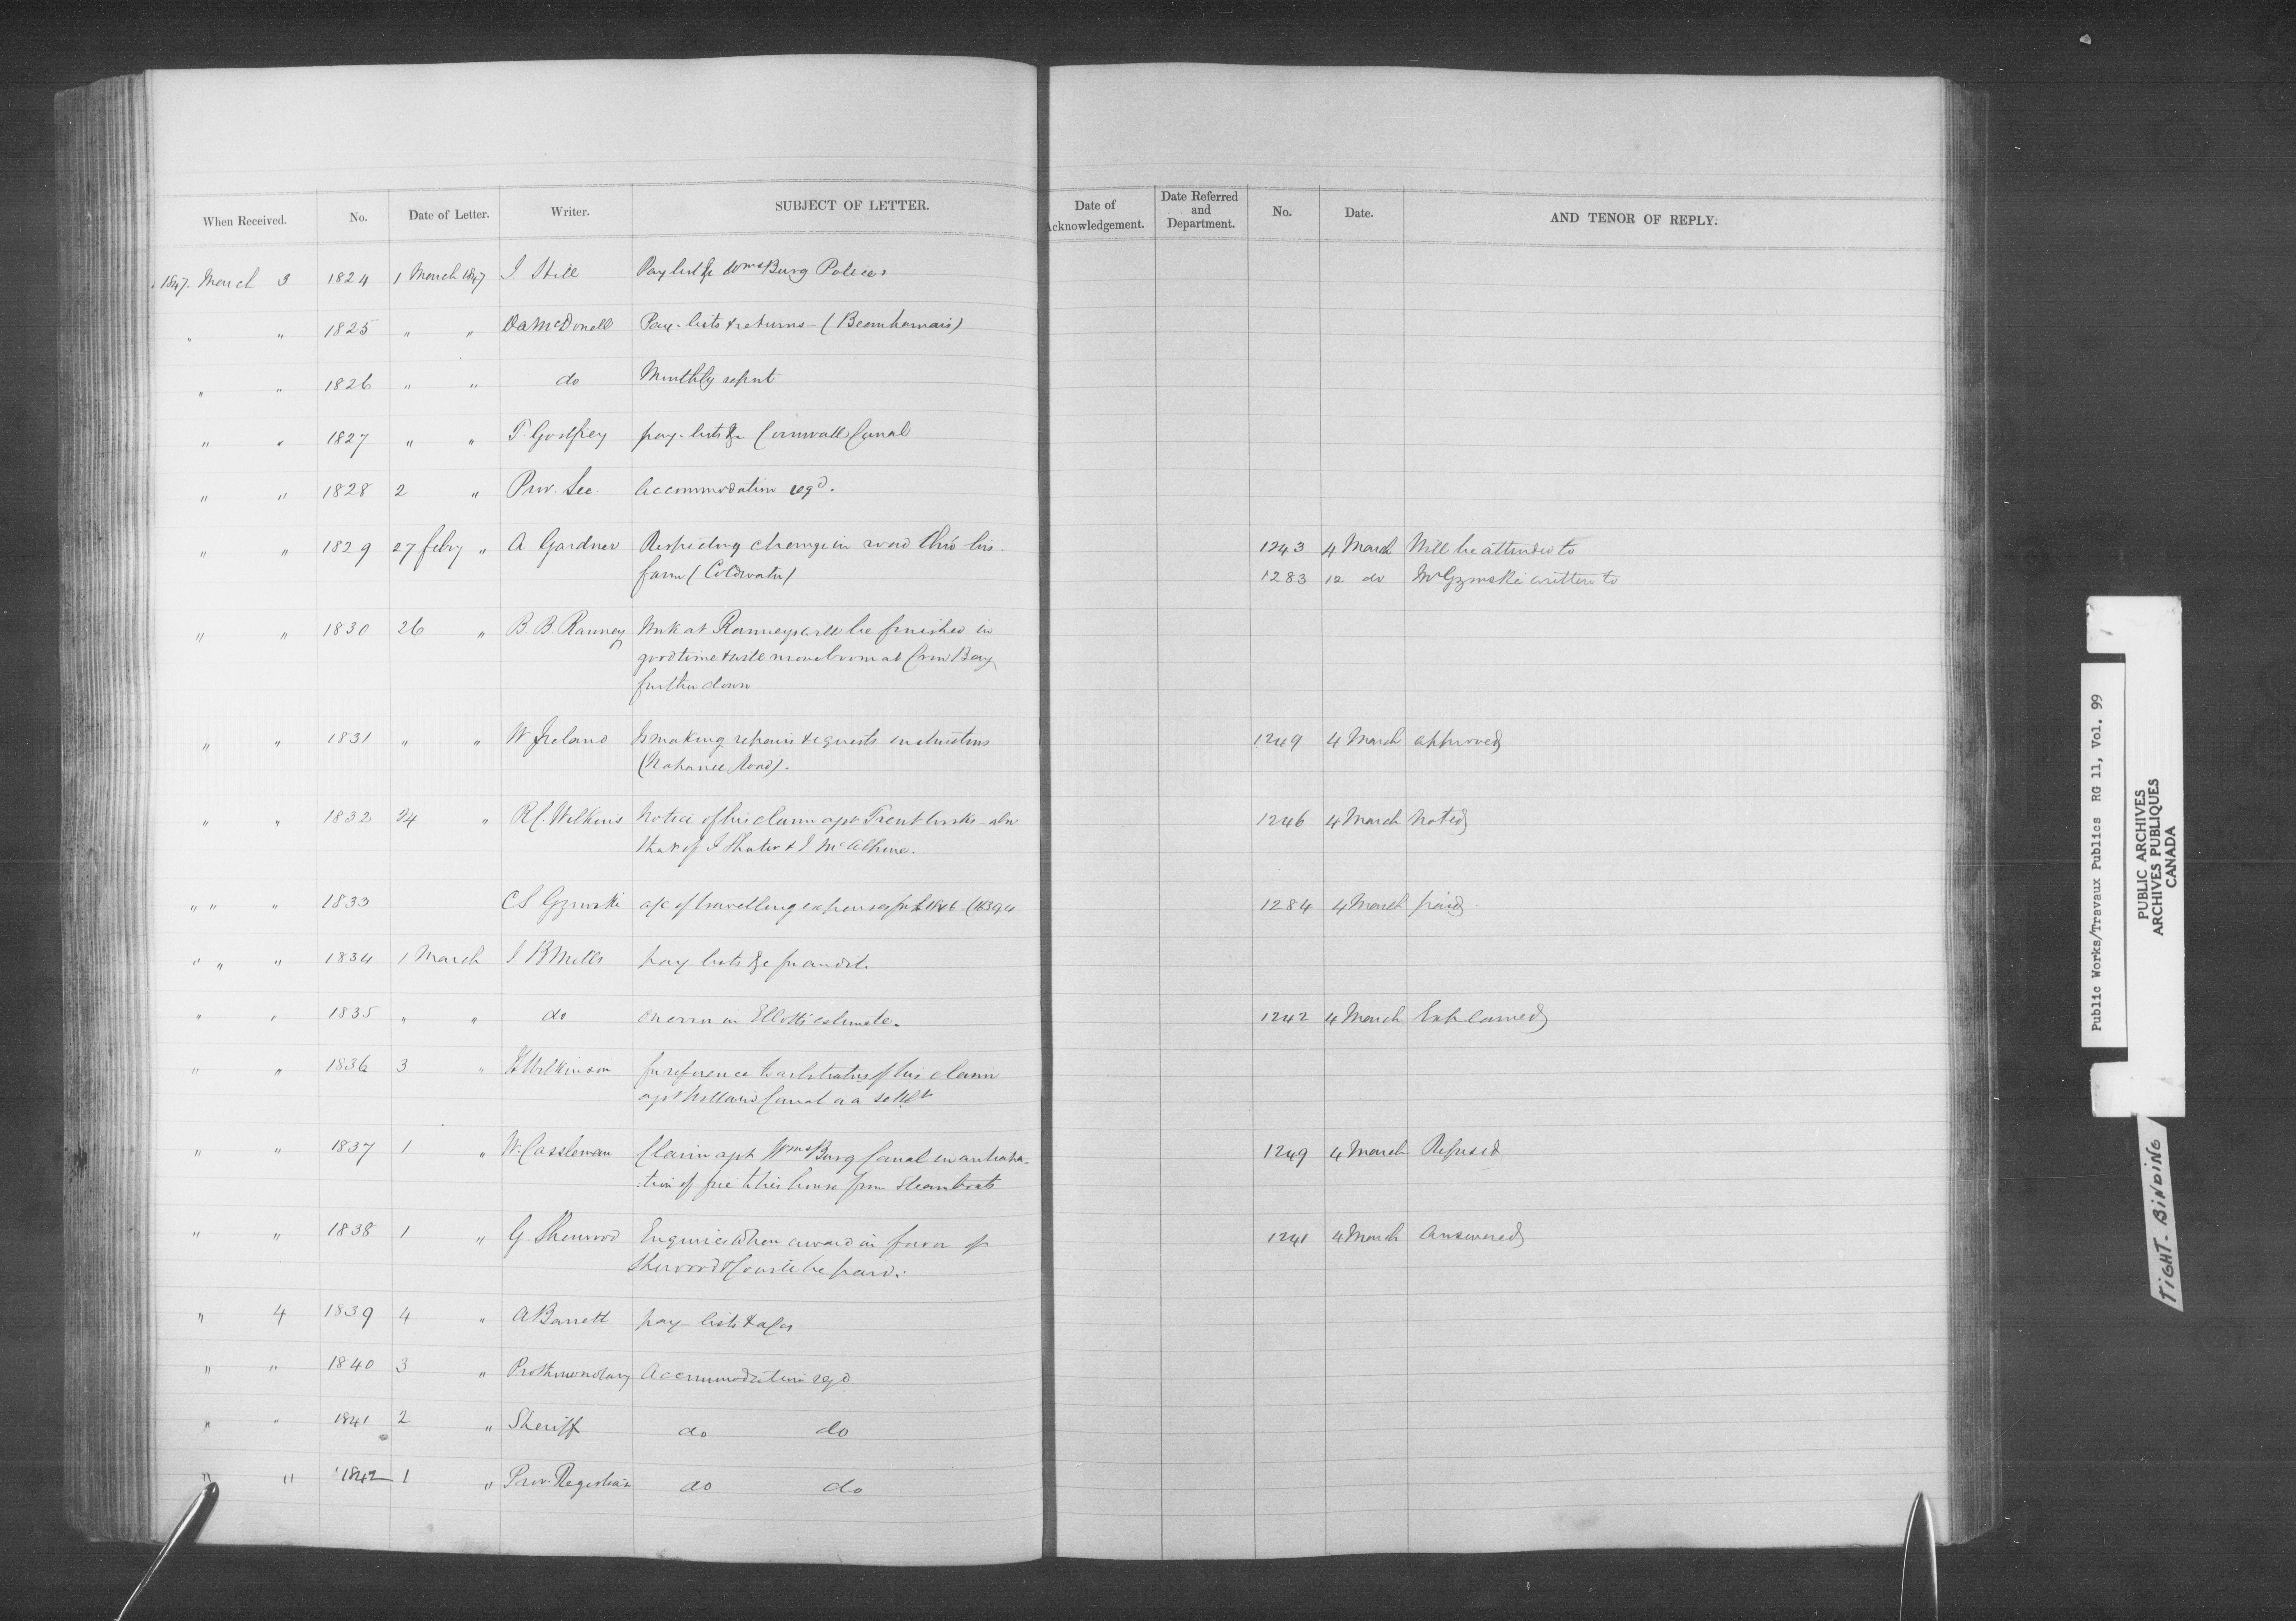 When Received. No. Date of Letter. Writer. SUBJECT OF LETTER. Date of Acknowledgement. Date Referred and Department. No. Date. AND TENOR OF REPLY.
1847. March 3 1824 1 March 1847 J. Hill Pay list &c Wmsburg Police
" " 1825 " " D A McDonell Pay-lists & returns - (Beauharnais)
" " 1826 " " do Monthly report
" " 1827 " " T. Godfrey pay-lists &c Cornwall Canal
" " 1828 2 " Prov. Sec. Accommodation reqd.
" " 1829 27 feby " A Gardner Respecting change in road thro' his 1243 4 March Will be attended to
farm (Coldwater) 1283 12 do Mr Gzowski written to
" " 1830 26 " B B. Ranney Work at Ranneys will be finished in
good time & will move boom at Crow Bay
further down
" " 1831 " " W Ireland Is making repairs & requests instructions 1249 4 March approved
(Napanee Road).
" " 1832 24 " R C. Wilkins Notice of his claim agst Trent Works - also 1246 4 March Noted
that of J Shuter & J McAlpine.
" " " 1833 C S Gzowski a/c of travelling expenses for 1846 1284 4 March paid
" " " 1834 1 March J B Mills pay lists &c for audit.
" " 1835 " " do On error in Elliotts estimate. 1242 4 March Explained
" " 1836 3 " Wilkinson In reference to arbitration of his claim
agst Welland Canal
" " 1837 1 " W. Cassleman Claim agst Wmsburg Canal in anticipa-
:tion of fire to his house from steamboats 1249 4 March Refused
" " 1838 1 " G. Sherwood Enquiries when award in favor of 1241 4 March Answered
Sherwood & Co will be paid.
" 4 1839 4 " A Barrett pay-lists & a/cs
" " 1840 3 " Prothonotary Accommodation reqd.
" " 1841 2 " Sheriff do do
" " 1842 1 " Prov. Registrar do do
Public Works/Travaux Publics RG 11, Vol. 99
PUBLIC ARCHIVES
ARCHIVES PUBLIQUES
CANADA
TIGHT-BINDING